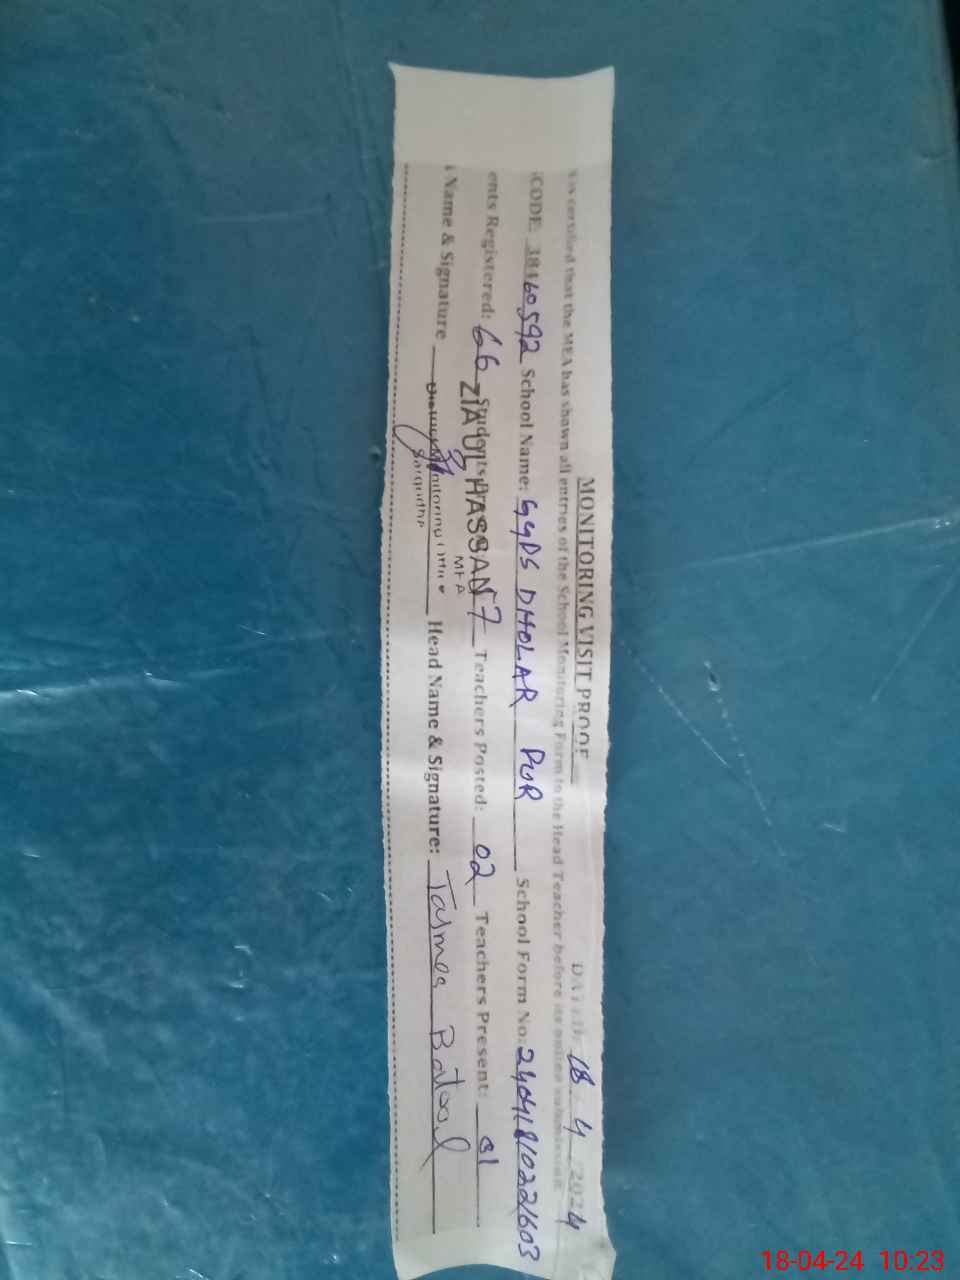 MONITORING VISIT PROOF
DATED: 18 - 4 /2024
is certified that the MEA has shown all entries of the School Monitoring Form to the Head Teacher before its online submission.
CODE: 38460592 School Name: GGPS DHOLAR PUR School Form No: 2404181022603
ents Registered: 66 Students Present 57 Teachers Posted: 02 Teachers Present: 01
ZIA UL HASSAN
MEA
Name & Signature Head Name & Signature: Tasmea Batool
Monitoring
Sargodha
18-04-24 10:23